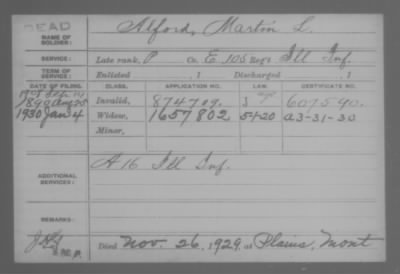 DEAD
NAME OF SOLDIER: Alford, Martin L.
SERVICE: Late rank, P Co. E, 105 Reg't Ill Inf.
TERM OF SERVICE: Enlisted , 1 Discharged , 1
DATE OF FILING. CLASS. APPLICATION NO. LAW. CERTIFICATE NO.
1890 Aug 25 Invalid, 874709. 607590.
1930 Jan 4 Widow, 1657802 5-1-20 a3-31-30
Minor,
ADDITIONAL SERVICES: A 16 Ill Inf.
REMARKS:
Died Nov. 26, 1929, at Plains, Mont